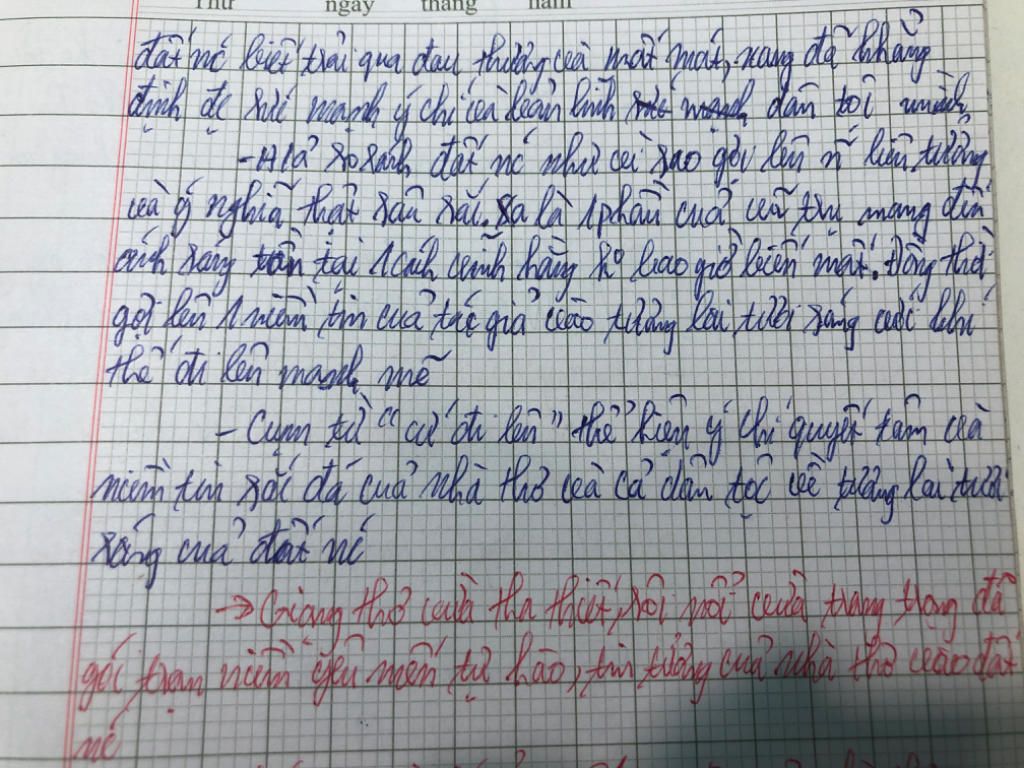 Thứ ngày tháng năm
đất nc biết trải qua đau thương và mất mát, xong đã khẳng
định đc sức mạnh ý chí và bản lĩnh dân tôi mình
- H/a so sánh đất nc như vì sao gợi lên n liên tưởng
và ý nghĩa thật sâu sắc. Sa là 1 phần của vũ trụ mang đến
ánh sáng tồn tại 1 cách vĩnh hằng ko bao giờ biến mất. Đồng thời
gợi lên 1 niềm tin của tác giả vào tương lai tươi sáng với khí
thế đi lên mạnh mẽ
- Cụm từ "cứ đi lên" thể hiện ý chí quyết tâm và
niềm tin sắc đá của nhà thơ và cả dân tộc về tương lai tươi
sáng của đất nc
→ Giọng thơ vừa tha thiết, sôi nổi vừa trang trọng đã
gói trọn niềm yêu mến tự hào, tin tưởng của nhà thơ vào đất
nc